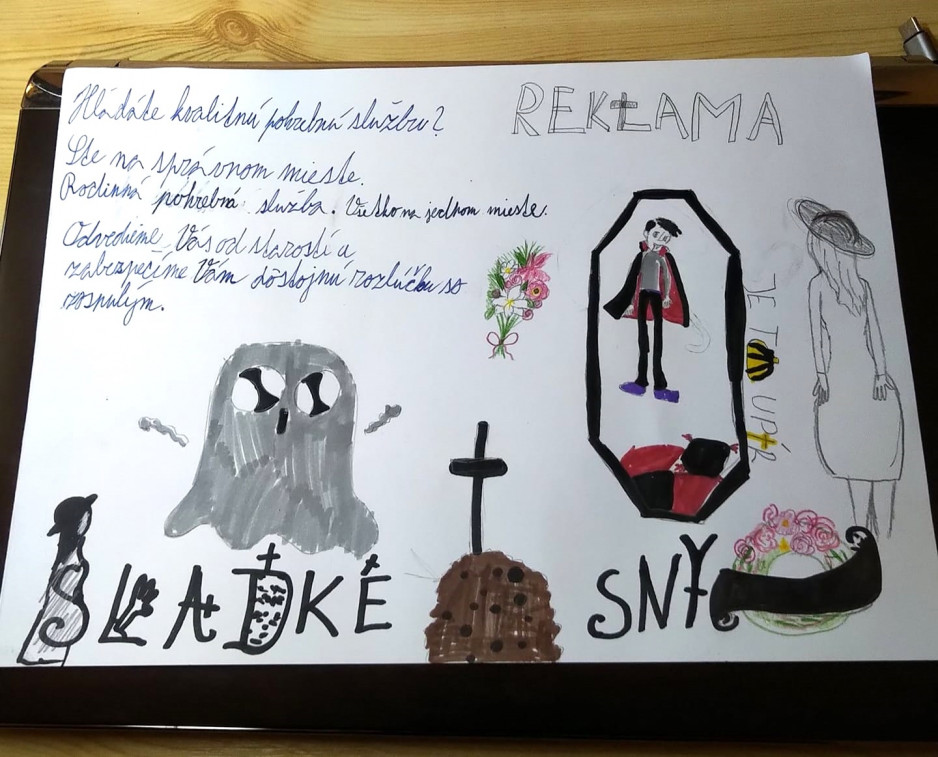 REKLAMA
Hľadáte kvalitnú pohrebnú službu?
Ste na správnom mieste.
Rodinná pohrebná služba. Všetko na jednom mieste.
Odvedieme Vás od starostí a
zabezpečíme Vám dôstojnú rozlúčku so
zosnulým.
JE TO UPÍR
SLADKÉ SNY